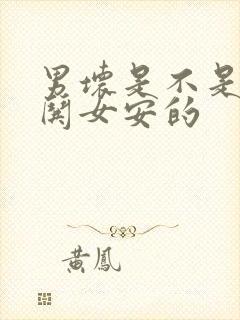 男壞是不是
女安的
黃鳳